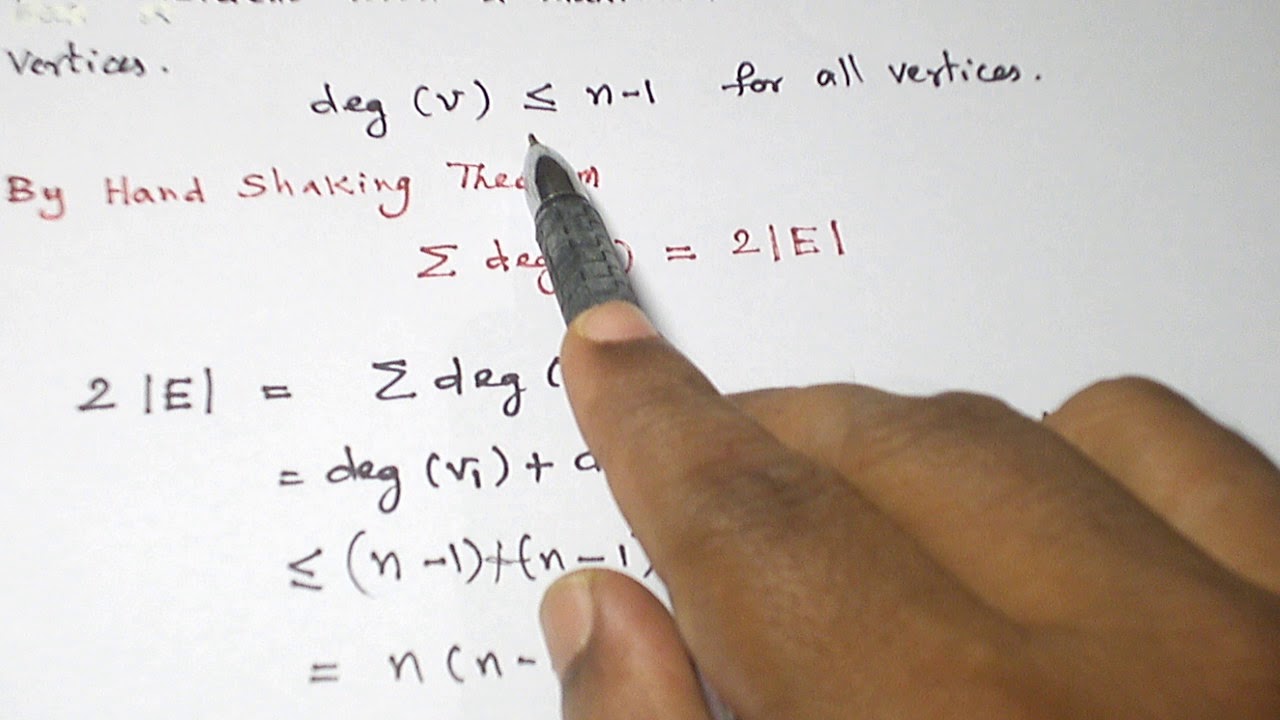 vertices.
deg (v) ≤ n-1 for all vertices.
By Hand Shaking
Σ = 2|E|
2 |E| = Σ deg (
= deg (v₁) +
≤ (n-1)+(n-1)
= n(n-